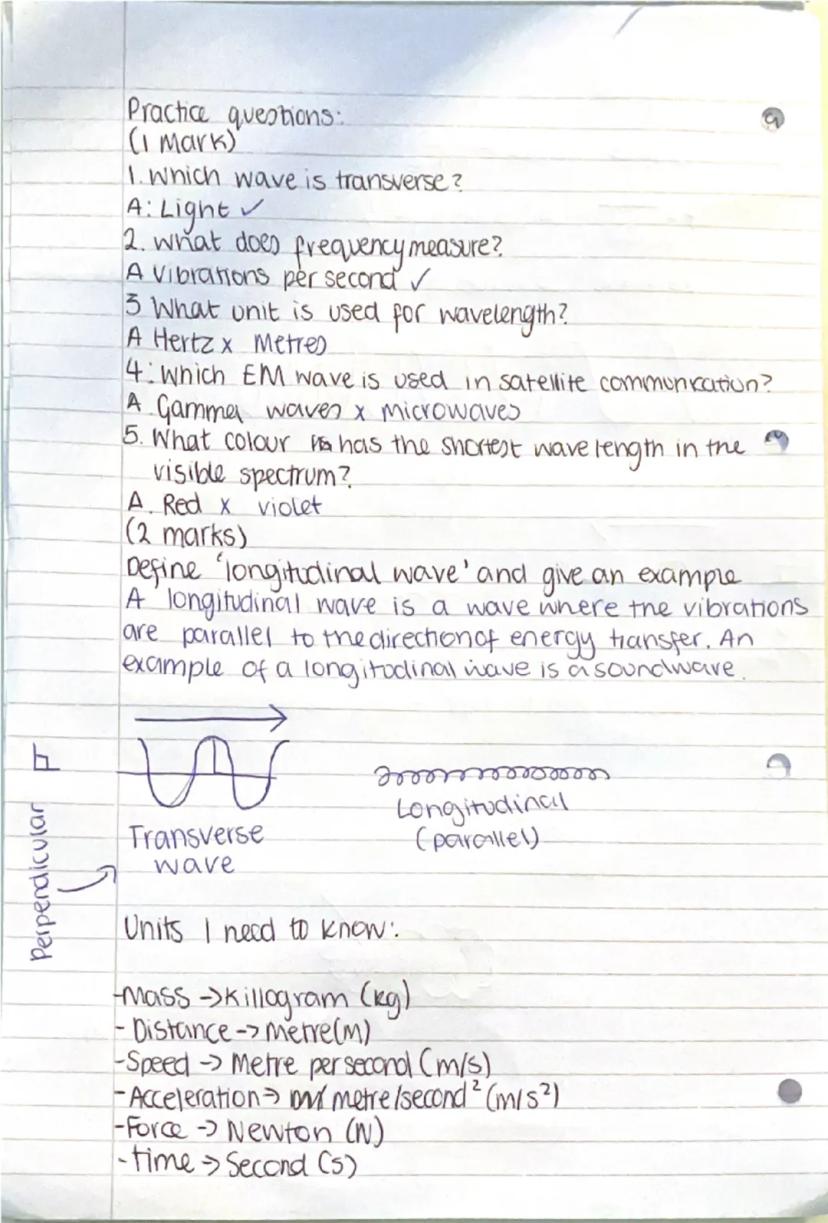 Practice questions:
(1 Mark)
1. Which wave is transverse?
A: Light ✓
2. What does frequency measure?
A vibrations per second ✓
3 What unit is used for wavelength?
A Hertz x Metres
4: Which EM wave is used in satellite communication?
A. Gamma waves x microwaves
5. What colour has the shortest wavelength in the
visible spectrum?
A. Red x violet
(2 marks)
Define 'longitudinal wave' and give an example
A longitudinal wave is a wave where the vibrations
are parallel to the direction of energy transfer. An
example of a longitudinal wave is a soundwave.
Longitudinal
(parallel)
Transverse
wave
Perpendicular
Units I need to know:
-Mass -> Killogram (kg)
- Distance -> Metre (m)
-Speed -> Metre per second (m/s)
-Acceleration -> metre/second² (m/s²)
-Force -> Newton (N)
-time -> Second (s)